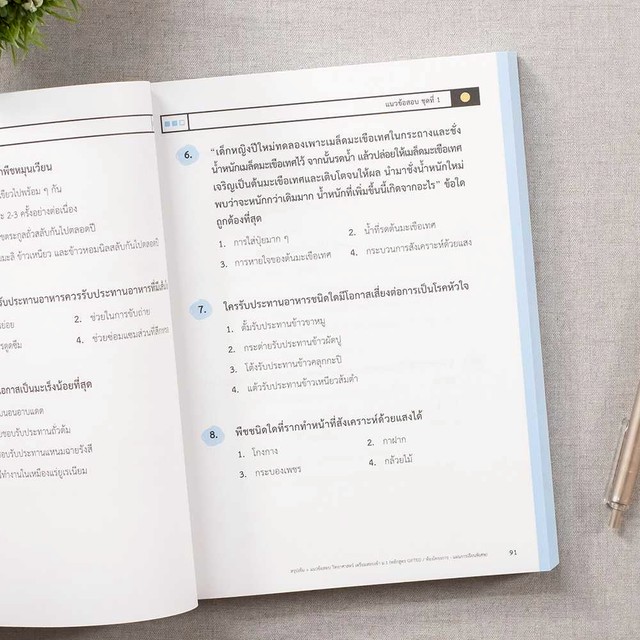 าพืชหมุนเวียน
ขียวไปพร้อม ๆ กัน
ะ 2-3 ครั้งอย่างต่อเนื่อง
ชตระกูลถั่วสลับกันไปตลอดปี
มะลิ ข้าวเหนียว และข้าวหอมนิลสลับกันไปตลอดปี
รับประทานอาหารควรรับประทานอาหารที่มีเส้น
ย่อย
2. ช่วยในการขับถ่าย
รดูดซึม
4. ช่วยซ่อมแซมส่วนที่สึกหรอ
โอกาสเป็นมะเร็งน้อยที่สุด
บนอนอาบแดด
ชอบรับประทานถั่วต้ม
อบรับประทานแหนมฉายรังสี
ทำงานในเหมืองแร่ยูเรเนียม
แนวข้อสอบ ชุดที่ 1
6. “เด็กหญิงปีใหม่ทดลองเพาะเมล็ดมะเขือเทศในกระถางและชั่ง
น้ำหนักเมล็ดมะเขือเทศไว้ จากนั้นรดน้ำ แล้วปล่อยให้เมล็ดมะเขือเทศ
เจริญเป็นต้นมะเขือเทศและเติบโตจนให้ผล นำมาชั่งน้ำหนักใหม่
พบว่าจะหนักกว่าเดิมมาก น้ำหนักที่เพิ่มขึ้นนี้เกิดจากอะไร” ข้อใด
ถูกต้องที่สุด
1. การใส่ปุ๋ยมาก ๆ 2. น้ำที่รดต้นมะเขือเทศ
3. การหายใจของต้นมะเขือเทศ 4. กระบวนการสังเคราะห์ด้วยแสง
7. ใครรับประทานอาหารชนิดใดมีโอกาสเสี่ยงต่อการเป็นโรคหัวใจ
1. ตั้มรับประทานข้าวขาหมู
2. กระต่ายรับประทานข้าวผัดปู
3. โด้งรับประทานข้าวคลุกกะปิ
4. แต้วรับประทานข้าวเหนียวส้มตำ
8. พืชชนิดใดที่รากทำหน้าที่สังเคราะห์ด้วยแสงได้
1. โกงกาง 2. กาฝาก
3. กระบองเพชร 4. กล้วยไม้
91